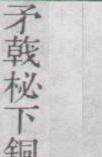 矛戟柲下銅